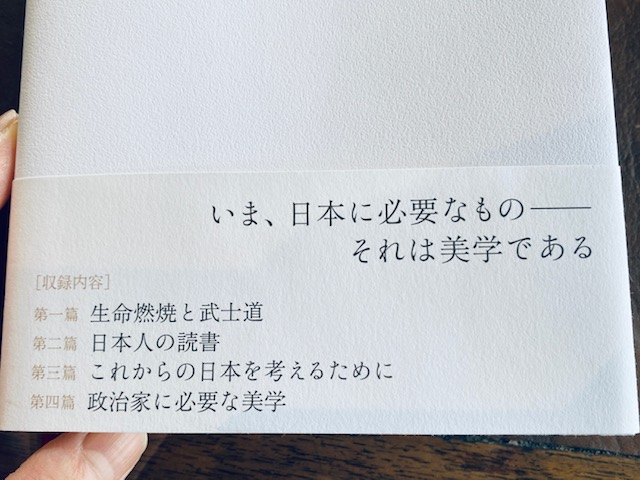 いま、日本に必要なもの――
それは美学である
［収録内容］
第一篇 生命燃焼と武士道
第二篇 日本人の読書
第三篇 これからの日本を考えるために
第四篇 政治家に必要な美学